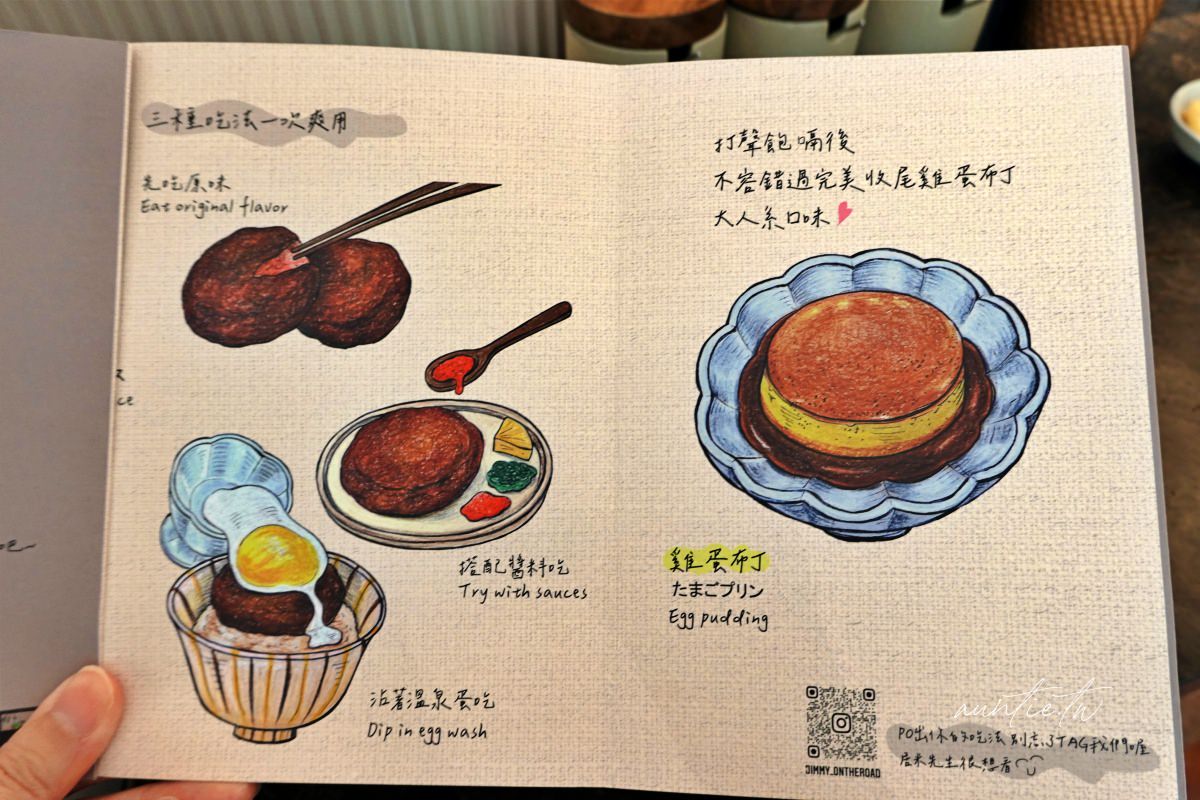 三種吃法一次爽用
先吃原味
Eat original flavor
搭配醬料吃
Try with sauces
沾著溫泉蛋吃
Dip in egg wash
ce
吧~
打聲飽嗝後
不容錯過完美收尾雞蛋布丁
大人系口味
雞蛋布丁
たまごプリン
Egg pudding
JIMMY_ONTHEROAD
PO出你的吃法 別忘了TAG我們喔
后米先生很想看
auntie.tw